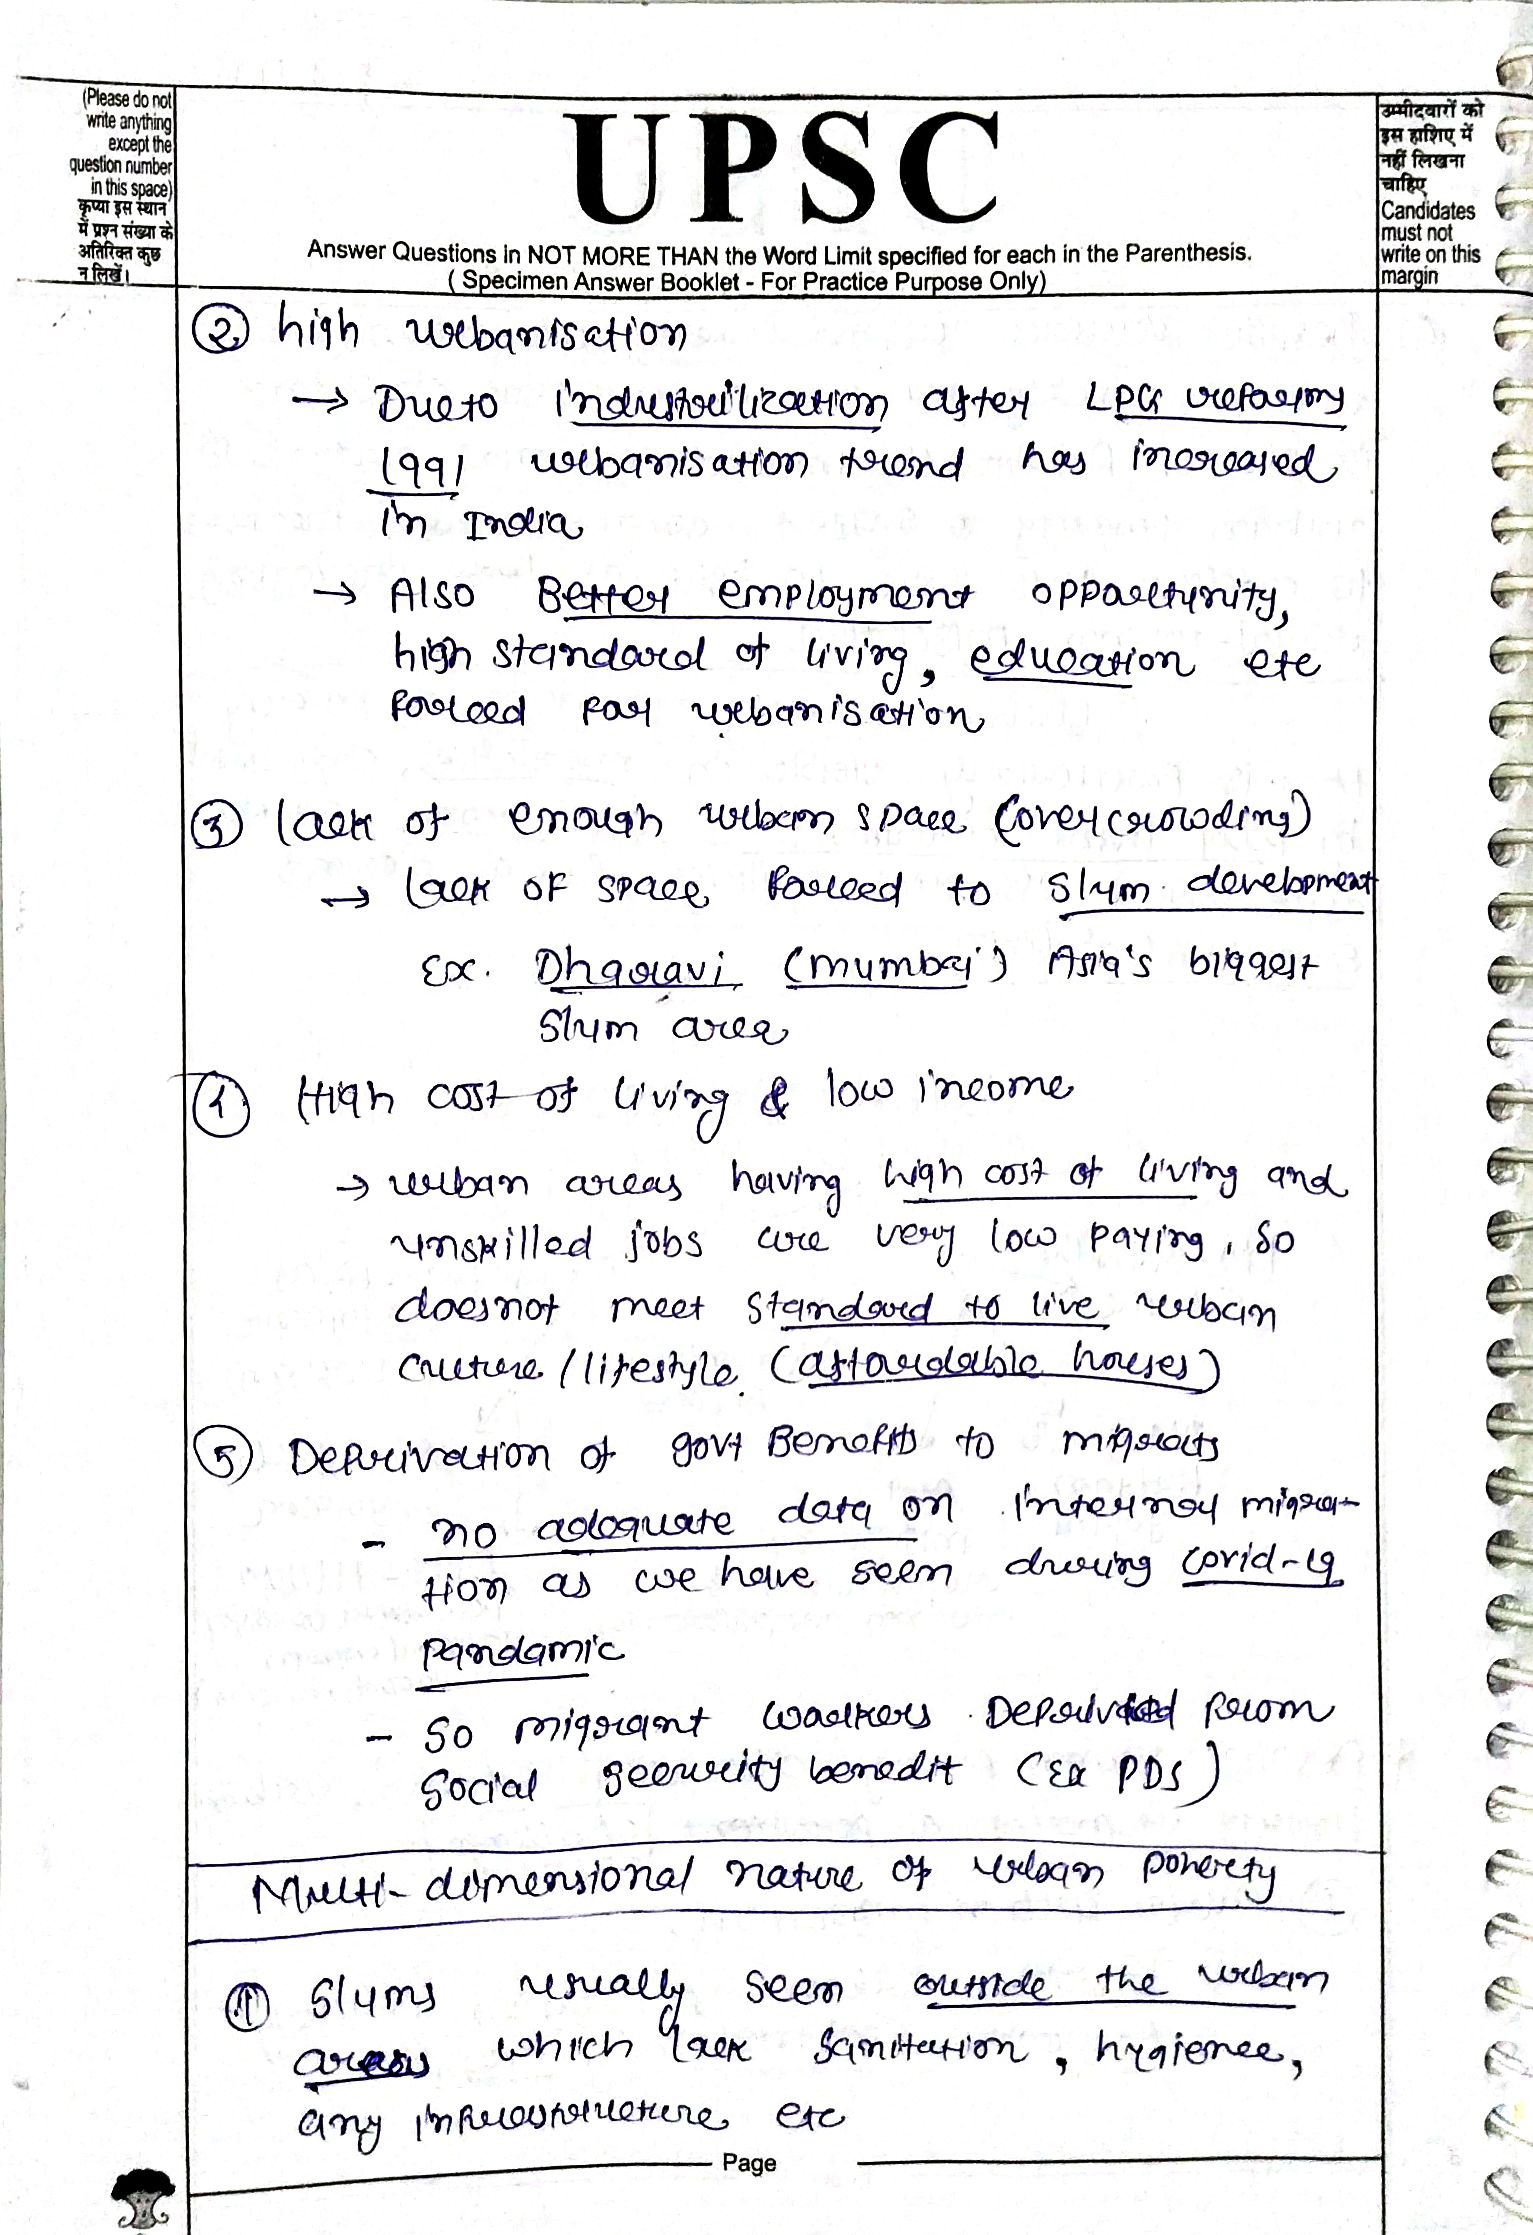 (Please do not
write anything
except the
question number
in this space)
कृप्या इस स्थान
में प्रश्न संख्या के
अतिरिक्त कुछ
न लिखें।
UPSC
Answer Questions in NOT MORE THAN the Word Limit specified for each in the Parenthesis.
( Specimen Answer Booklet - For Practice Purpose Only)
उम्मीदवारों को
इस हाशिए में
नहीं लिखना
चाहिए
Candidates
must not
write on this
margin
② high urbanisation
→ Due to industrilization after LPG reforms
1991 urbanisation trend has increased
in India
→ Also Better employment opportunity,
high standard of living, education etc
forced for urbanisation
③ lack of enough urban space (overcrowding)
→ lack of space forced to slum development
Ex. Dharavi (mumbai) Asia's biggest
slum area
④ High cost of living & low income
→ urban areas having high cost of living and
unskilled jobs are very low paying, so
doesnot meet standard to live urban
culture / lifestyle (affordable houses)
⑤ Deprivation of govt Benefits to migrats
- no adequate data on internal migra-
tion as we have seen during covid-19
pandamic
- So migrant workers Deprived from
social security benedit (Ex PDS)
Multi-dimensional nature of urban poverty
① Slums usually seen outside the urban
areas which lack sanitation, hygience,
any infrastructure etc
Page